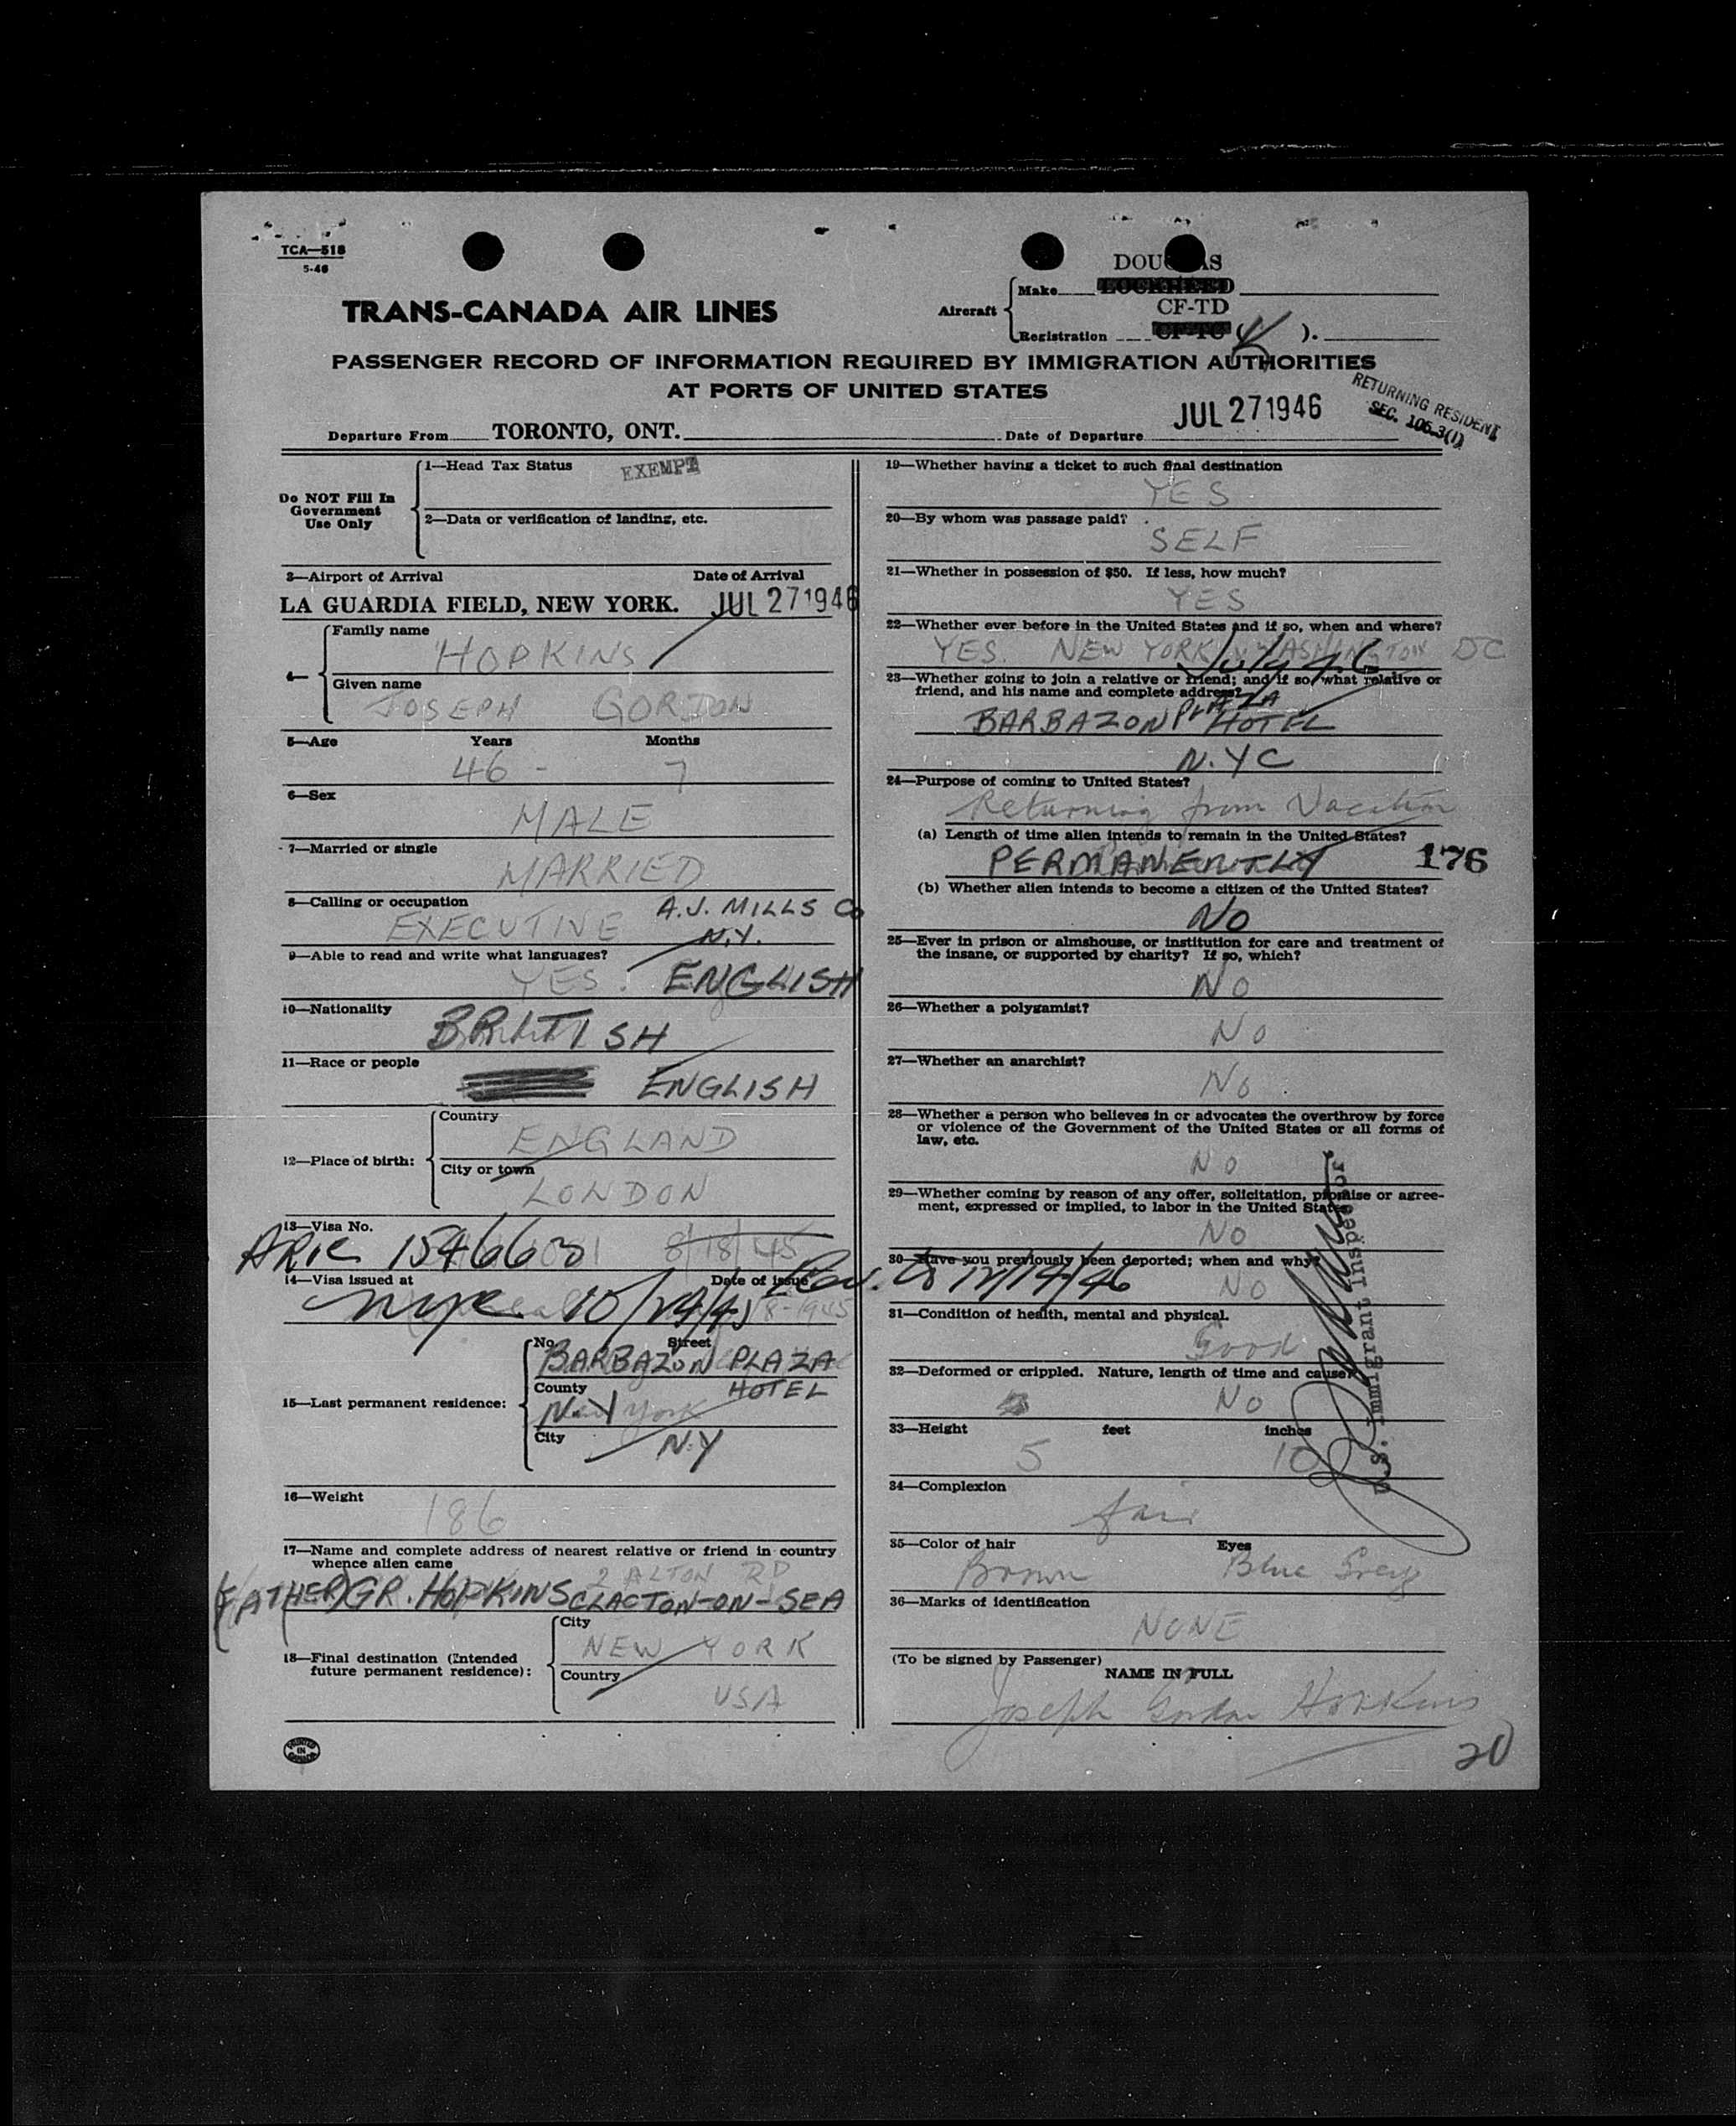 TCA—518
5-46
DOUGLAS
Make
LOCKHEED
TRANS-CANADA AIR LINES
Aircraft
CF-TD
Registration
CF-TC (K ).
PASSENGER RECORD OF INFORMATION REQUIRED BY IMMIGRATION AUTHORITIES
AT PORTS OF UNITED STATES
RETURNING RESIDENT
SEC. 106.3(1)
Departure From TORONTO, ONT.
Date of Departure JUL 27 1946
Do NOT Fill In
Government
Use Only
1—Head Tax Status EXEMPT
2—Data or verification of landing, etc.
3—Airport of Arrival Date of Arrival
LA GUARDIA FIELD, NEW YORK. JUL 27 1946
4—
Family name
HOPKINS
Given name
JOSEPH GORDON
5—Age Years Months
46 - 7
6—Sex
MALE
7—Married or single
MARRIED
8—Calling or occupation A.J. MILLS Co
EXECUTIVE N.Y.
9—Able to read and write what languages?
YES. ENGLISH
10—Nationality
BRITISH
11—Race or people
ENGLISH
12—Place of birth:
Country
ENGLAND
City or town
LONDON
13—Visa No.
ARIC 154663 8/18/45
14—Visa issued at Date of issue
NYC 10/24/45
15—Last permanent residence:
No. Street
BARBAZON PLAZA
County HOTEL
N.Y
City
N.Y
16—Weight
186
17—Name and complete address of nearest relative or friend in country
whence alien came
2 ALTON RD
(FATHER) GR. HOPKINS CLACTON-ON-SEA
18—Final destination (Intended
future permanent residence):
City
NEW YORK
Country
USA
PRINTED
IN
CANADA
19—Whether having a ticket to such final destination
YES
20—By whom was passage paid?
SELF
21—Whether in possession of $50. If less, how much?
YES
22—Whether ever before in the United States and if so, when and where?
YES. NEW YORK WASHINGTON DC
July 46
23—Whether going to join a relative or friend; and if so, what relative or
friend, and his name and complete address?
BARBAZON PLAZA HOTEL
N.Y C
24—Purpose of coming to United States?
Returning from Vacation
(a) Length of time alien intends to remain in the United States?
PERMANENTLY
176
(b) Whether alien intends to become a citizen of the United States?
No
25—Ever in prison or almshouse, or institution for care and treatment of
the insane, or supported by charity? If so, which?
No
26—Whether a polygamist?
No
27—Whether an anarchist?
No
28—Whether a person who believes in or advocates the overthrow by force
or violence of the Government of the United States or all forms of
law, etc.
No
29—Whether coming by reason of any offer, solicitation, promise or agree-
ment, expressed or implied, to labor in the United States
No
30—Have you previously been deported; when and why?
No
31—Condition of health, mental and physical.
Good
32—Deformed or crippled. Nature, length of time and cause?
No
33—Height feet inches
5 10
34—Complexion
fair
35—Color of hair Eyes
Brown Blue Grey
36—Marks of identification
NONE
(To be signed by Passenger)
NAME IN FULL
Joseph Gordon Hopkins
U.S. Immigrant Inspector
20